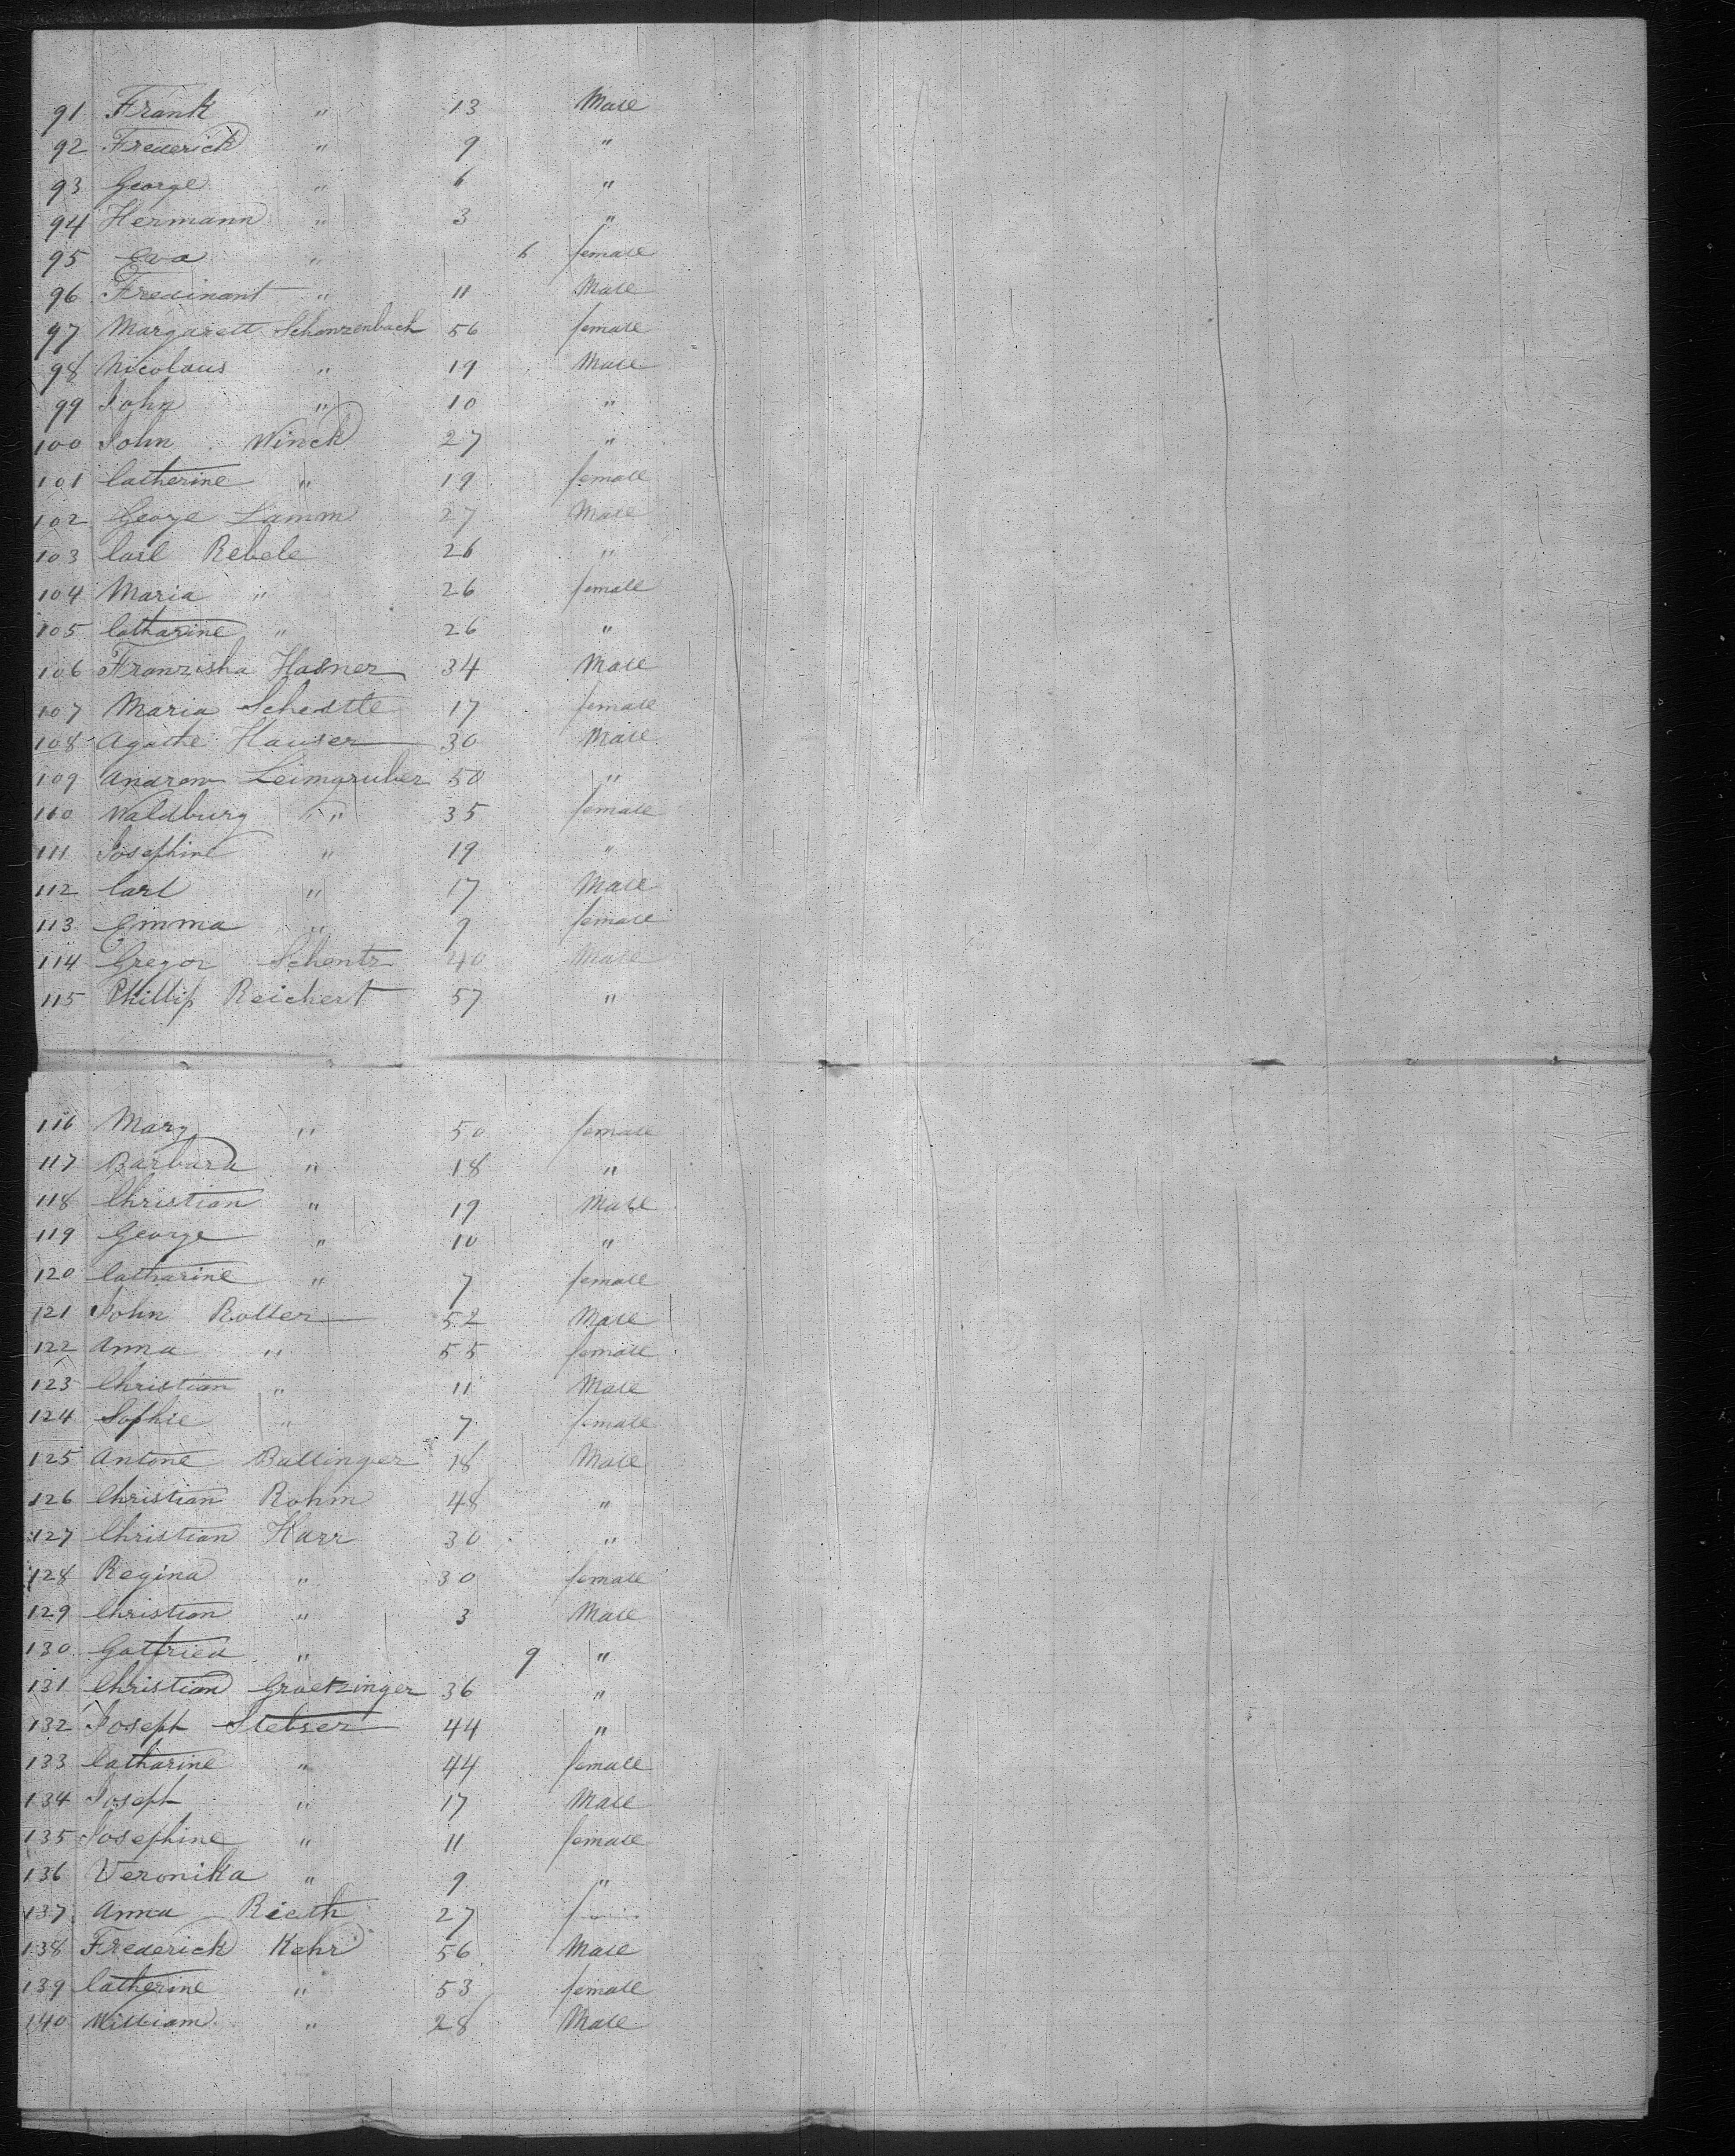 91 Frank " 13 Male
92 Frederick " 9 "
93 George " 6 "
94 Hermann " 3 "
95 Eva " 6 female
96 Fredinant " 11 Male
97 Margarett Schanzenbach 56 female
98 Nicolaus " 19 Male
99 John " 10 "
100 John Winck 27 "
101 Catherine " 19 female
102 George Lamm 27 Male
103 Carl Rebele 26 "
104 Maria " 26 female
105 Catharine " 26 "
106 Franziska Hasner 34 Male
107 Maria Schestle 17 female
108 Agathe Hauser 30 Male
109 Andrew Leimgruber 50 "
110 Waldburg " 35 female
111 Josephine " 19 "
112 Carl " 17 Male
113 Emma " 9 female
114 Gregor Schentz 40 Male
115 Phillip Reichert 57 "
116 Mary " 50 female
117 Barbara " 18 "
118 Christian " 19 Male
119 George " 10 "
120 Catharine " 7 female
121 John Roller 52 Male
122 Anna " 55 female
123 Christian " 11 Male
124 Sophie " 7 female
125 Antone Bullinger 18 Male
126 Christian Rohm 48 "
127 Christian Harr 30 "
128 Regina " 30 female
129 Christian " 3 Male
130 Gottfried " 9 "
131 Christian Groetzinger 36 "
132 Joseph Stebser 44 "
133 Catharine " 44 female
134 Joseph " 17 Male
135 Josephine " 11 female
136 Veronika " 9 "
137 Anna Rieth 27 f
138 Frederick Kehr 56 Male
139 Catherine " 53 female
140 William " 28 Male